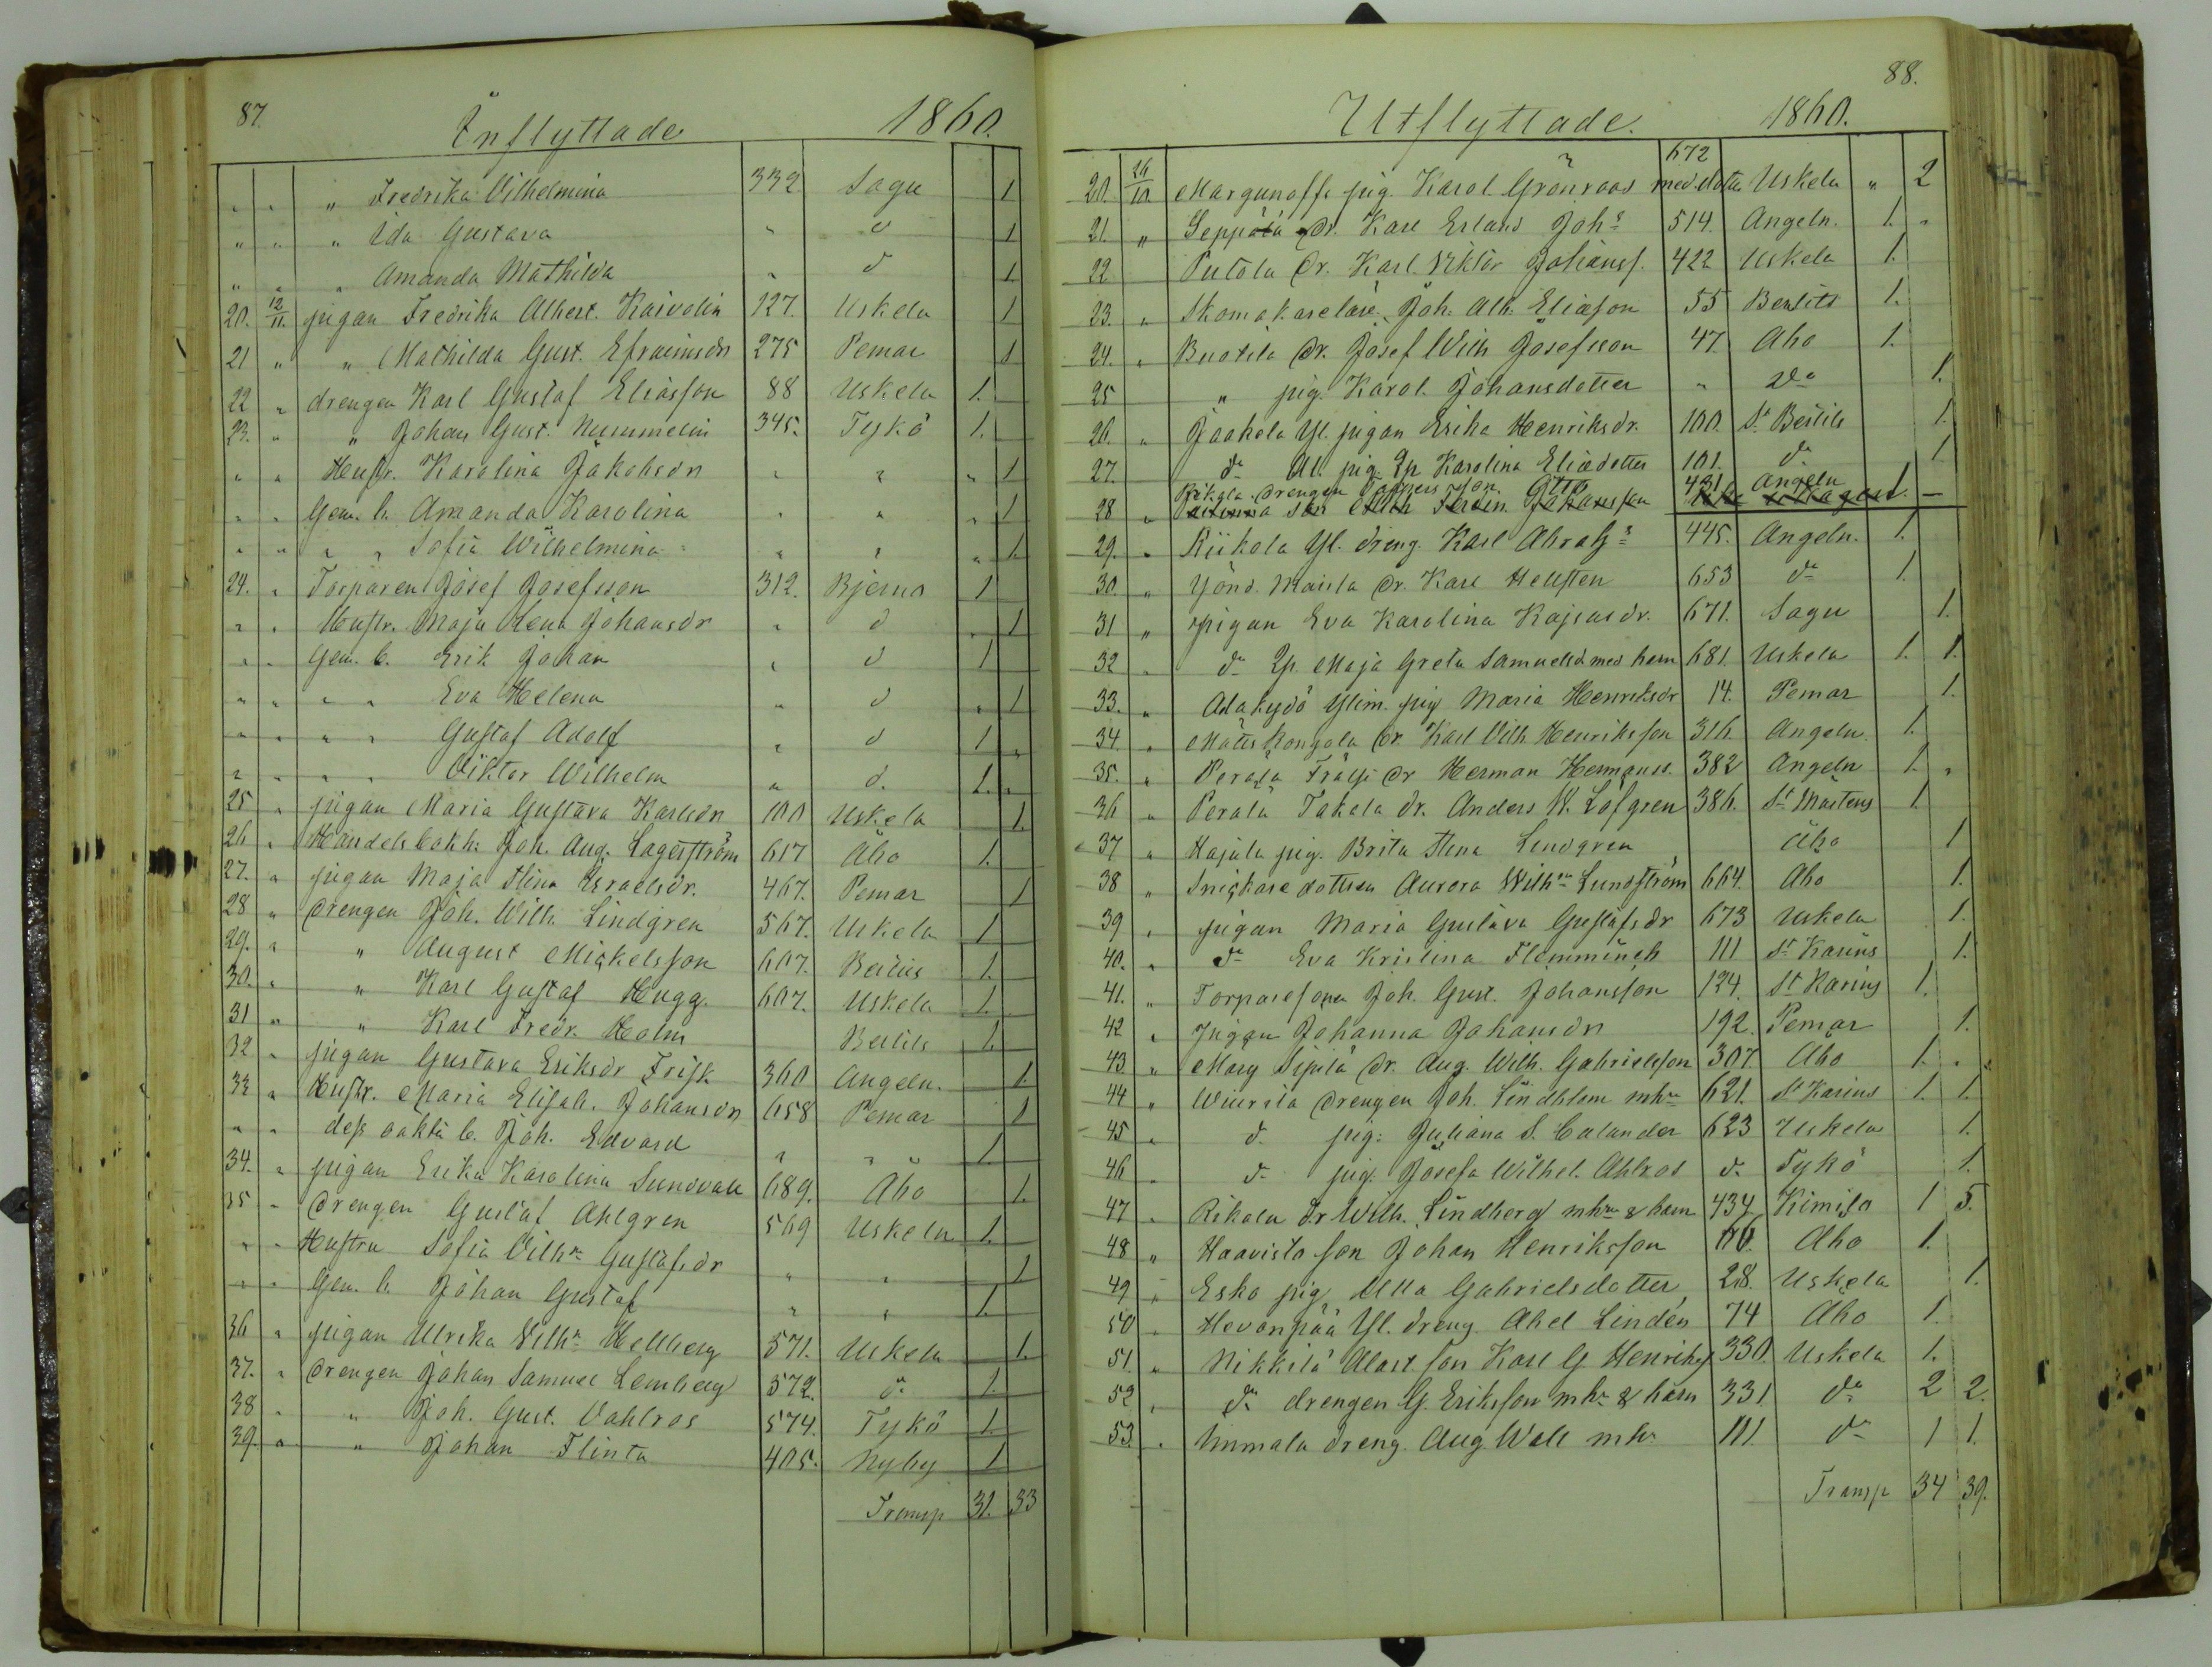 87.
Inflyttade 1860.
" " " Fredrika Vilhelmina 332 Sagu 1
" " " Ida Gustava " d 1
" " " Amanda Mathilda " d 1.
20. 12/11. pigan Fredrika Albert. Kaivolin 127. Uskela 1
21 " " Mathilda Gust. Efraimsdr 275 Pemar 1
22 " drengen Karl Gustaf Eliasson 88 Uskela 1.
23. " " Johan Gust. Nummelin 345. Tykö 1.
" " Hustr. Karolina Jakobsdr " " " 1
" " Gem. b. Amanda Karolina " " " 1
" " " " Sofia Wilhelmina " " " 1.
24. " Torparen Josef Josefsson 312. Bjerno 1
" " Hustr. Maja Lena Johansdr " d " 1
" " Gem. b. Erik Johan " d 1
" " " " Eva Helena " d " 1
" " " " Gustaf Adolf " d 1 "
" " " " Viktor Wilhelm " d. 1. "
25 " pigan Maria Gustava Karlsdr 100 Uskela 1.
26 " Handelsbokh. Joh. Aug. Lagerström 617 Åbo 1.
27. " pigan Maja Stina Israelsdr. 467. Pemar 1
28 " Drengen Joh. Wilh. Lindgren 567. Uskela 1
29. " " August Mickelsson 607. Beiliis 1.
30. " " Karl Gustaf Hugg. 607. Uskela 1.
31 " " Karl Fredr. Holm Beilils 1.
32 " pigan Gustava Eriksdr Frisk 360 Angeln. 1.
33 " Hustr. Maria Elisab. Johansdr 658 Pemar 1
" " dess oäkta b. Joh. Edvard " " " 1
34. " pigan Erika Karolina Sundvall 689. Åbo 1.
35 " Drengen Gustaf Ahlgren 569 Uskela 1.
" " Hustru Sofia Vilhna Gustafsdr " " 1
" " Gem. b. Johan Gustaf " " 1.
36 " pigan Ulrika Vilhna Hellberg 571. Uskela 1.
37. " Drengen Johan Samuel Lemberg 572. do 1.
38 " " Joh. Gust. Vahlros 574. Tykö 1.
39. " " Johan Flinta 405. Nyby 1
Transp 31. 33
88.
Utflyttade. 1860.
672
20. 26/10 Margunoffs pig. Karol. Grönroos med dotter Uskela " 2
21. " Seppälä Dr. Karl Erland Johs 514. Angeln. 1. "
22 Putola Dr. Karl Viktor Johanss. 422 Uskela 1.
23. " Skomakarelärl. Joh. Alb. Eliasson 55 Beilits 1.
24. " Buotila Dr. Josef Wilh Josefsson 47. Abo 1.
25 " pig. Karol. Johansdotter " do 1.
26. " Jaakola Yl. pigan Erika Henriksdr. 100. St Beilils 1.
27. do Al. pig. Ip Karolina Eliædotter 101. do 1
Rikala drengen Otto 431. Angeln 1. –
28 "
29. " Riikala Yl. dreng. Karl Abra 445. Angeln. 1.
30. " Yönd. Maisla Dr. Karl Hellsten 653 do 1.
31 " pigan Eva Karolina Kajsasdr. 671. Sagu 1.
32 " do Ip. Maja Greta Samuelsd med barn 681. Uskela 1. 1.
33. " Alakydö Ylim. pig Maria Henriksdr 14. Pemar 1.
34. " Mattis Kongola Dr. Karl Vilh Henriksson 316. Angeln. 1.
35. " Perälä Frälsi Dr Herman Hermanss. 382 Angeln 1. "
36 " Perälä Takala Dr. Anders W. Löfgren 386. St Martens 1
37 " Hajala pig. Brita Stina Lindgren Åbo 1
38 " Snickare dottren Aurora Wilhna Lundström 664. Abo 1.
39 " pigan Maria Gustava Gustafsdr 673 Uskela 1.
40. " do Eva Kristina Flemminch 111 St Karins 1.
41. " Torparesonen Joh. Gust. Johansson 124. St Karins 1.
42 " Pigan Johanna Johansdr 192. Pemar 1.
43 " Marg Sipilä Dr. Aug. Wilh. Gabrielsson 307. Abo 1. "
44 " Wuorila Drengen Joh. Lindblom mhu 621. St Karins 1. 1.
45 " d. pig. Juliana S. Calander 623 Uskela 1.
46 " do pig. Josefa Wilhel. Ahlros do Tykö 1.
47 " Rikala Dr Wilh. Lindberg mhu & barn 434. Kimito 1 5.
48 " Haavisto son Johan Henriksson Abo 1.
49 " Esko pig Ulla Gabrielsdotter 28. Uskela 1.
50 " Hevonpää Yl. dreng. Abel Lindén 74 Abo 1.
51. " Nikkilä Alast. son Karl G. Henriks 330. Uskela 1.
52 " do drengen G. Eriksson mhu & barn 331 do 2 2.
53. " Ummala dreng. Aug. Wall mhu 111. do 1 1.
Transp 34 39.